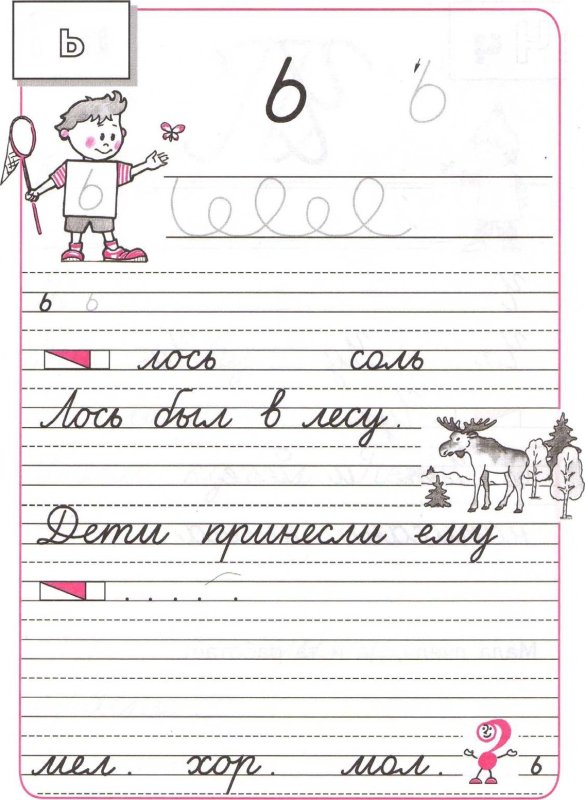 ь
ь ь
ь
ь ь
лось соль
Лось был в лесу.
Дети принесли ему
. . . . .
мел. хор. мол. ? ь